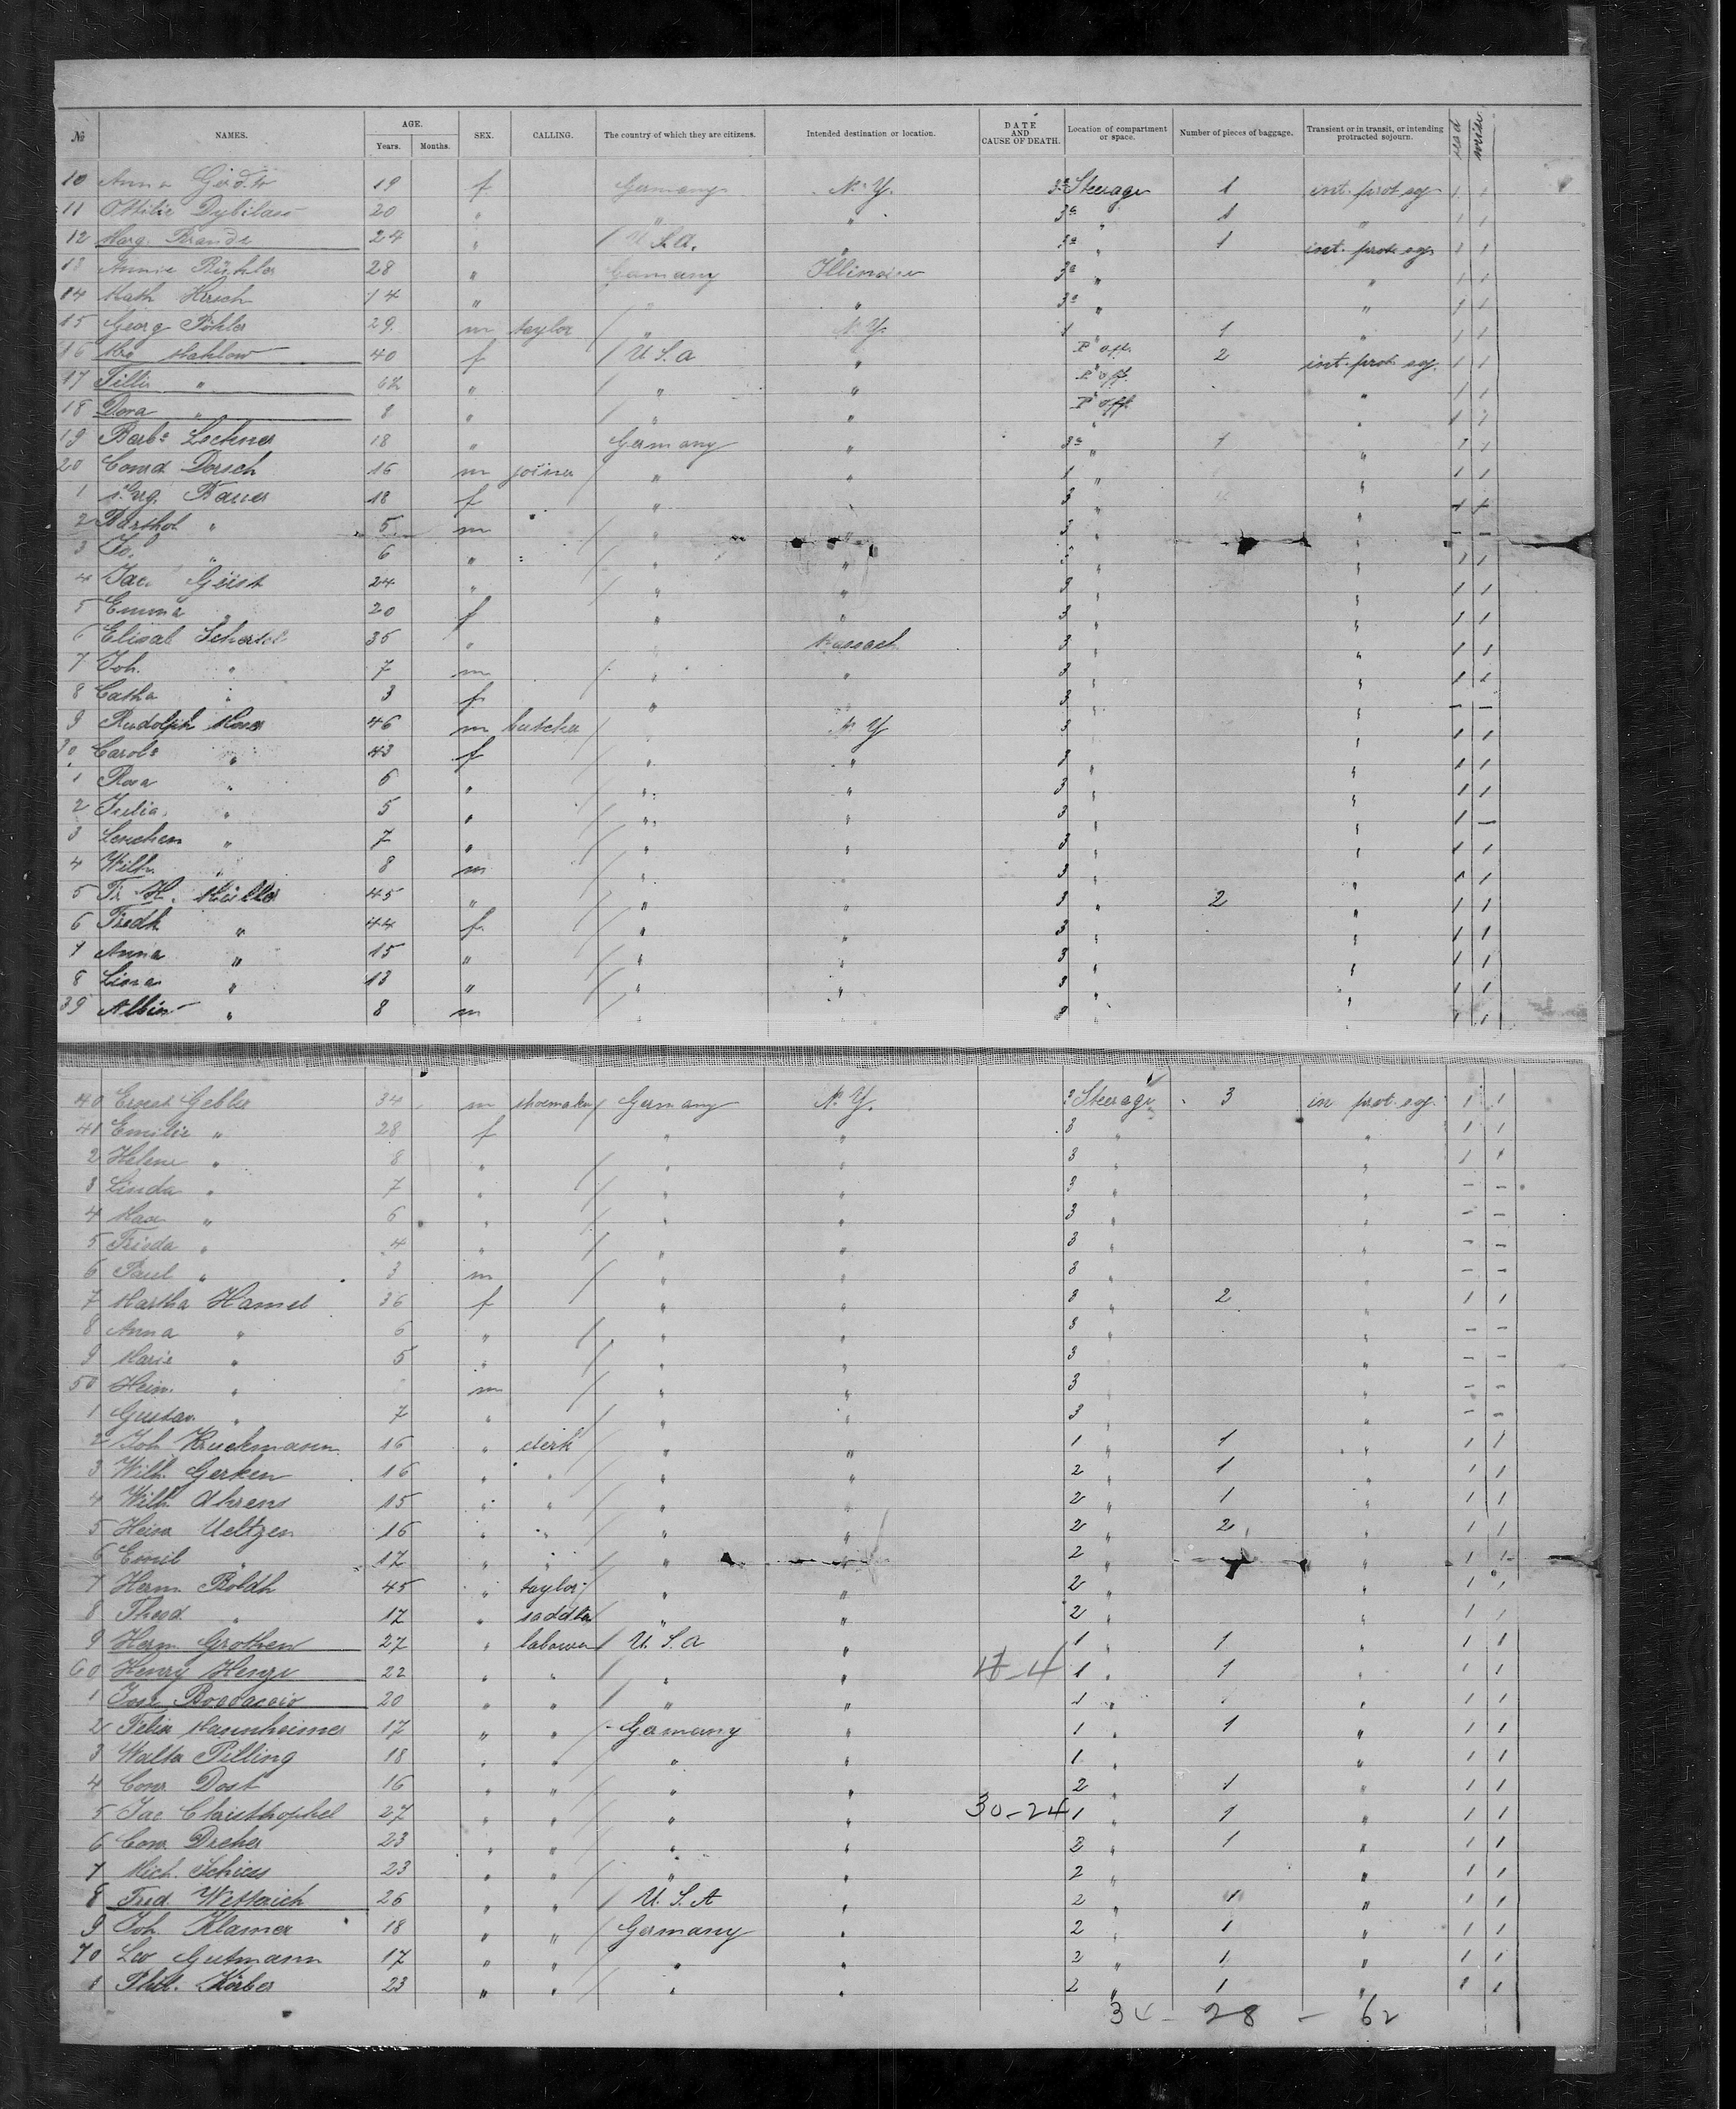 № NAMES. AGE. Years. Months. SEX. CALLING. The country of which they are citizens. Intended destination or location. DATE AND CAUSE OF DEATH. Location of compartment or space. Number of pieces of baggage. Transient or in transit, or intending protracted sojourn. read write
10 Anna 19 f Germany N. Y. 3a Steerage 1 int. prot. soj. 1 1
11 Ottilie Dybilass 20 " " " 3a " 1 " 1 1
12 Marg. Brande 24 " / U.S.A. " 3a " 1 int. prot. soj. 1 1
13 Annie 28 " Germany Illinois 3a " " 1 1
14 Math Hirsch 14 " " " 3a " " 1 1
15 Georg Pöhler 29 m taylor / " N. Y. 1 1 " 1 1
16 Mrs Mahlow 40 f / U.S.A " 2 int. prot. soj. 1 1
17 Tillie " " / " " " 1 1
18 Dora " 8 " / " " " 1 1
19 Barba Lechner 18 " Germany " 3a " 1 " 1 1
20 Conrd Dorsch 16 m joiner / " " 1 " " 1 1
1 Bauer 18 f " " 3 " "
2 Barthol " 5 m / " " 3 " " – –
3 Jo. " 6 " / " " " " 1 1
4 Jac. Geist 24 " / " " 3 " " 1 1
5 Emma " 20 f " " 3 " " 1 1
6 Elisab 35 " " Massach 3 " " 1 1
7 Joh. " 7 m / " " 3 " " 1 1
8 Catha " 3 f " " 3 " " – –
9 Rudolph 46 m butcher / " N. Y 3 " " 1 1
30 Carola " 43 f / " " 3 " " 1 1
1 Rosa " 6 " / " " 3 " " 1 1
2 Julia " 5 " / " " 3 " " 1 –
3 Lenchen " 7 " / " " 3 " " 1 1
4 Wilh. " 8 m / " " 3 " " 1 1
5 Fr. H. Müller 45 " / " " 3 " 2 " 1 1
6 Fredk " 44 f / " " 3 " " 1 1
7 Anna " 15 " / " " 3 " " 1 1
8 Liona " 13 " / " " 3 " " 1 1
39 Albin " 8 m " " 3 " " 1 1
40 Ernst Gebler 34 m shoemaker / Germany N. Y. 3 Steerage 3 in prot. soj. 1 1
41 Emilie " 28 f " " 3 " " 1 1
2 Helene " 8 " / " " 3 " " 1 1
3 Linda " 7 " / " " 3 " " – –
4 Max " 6 " / " " 3 " " – –
5 Frieda " 4 " / " " 3 " " – –
6 Paul " 3 m / " " 3 " " – –
7 Martha Hamel 36 f / " " 3 " 2 " 1 1
8 Anna " 6 " / " " 3 " " – –
9 Marie " 5 " / " " 3 " " – –
50 Hein. " m / " " 3 " " – –
1 Gustav " 7 " / " " 3 " " – –
2 Joh Kruckmann 16 " clerk / " " 1 " 1 " 1 1
3 Wilh. Gerken 16 " " / " " 2 " 1 " 1 1
4 Wilh. Ahrens 15 " " / " " 2 " 1 " 1 1
5 Heinr Ueltzen 16 " " / " " 2 " 2 " 1 1
6 Emil " 17 " " / " " 2 " " 1 1
7 Herm Boldt 45 " taylor / " " 2 " " 1 1
8 Theod " 17 " saddler / " " 2 " " 1 1
9 Herm Grothen 27 " labourer / U.S.A " 1 " 1 " 1 1
60 Henry Henze 22 " " / " " 1 " 1 " 1 1
1 Jose Boccaccio 20 " " / " " 1 " " 1 1
2 Felix Mannheimer 17 " " Germany " 1 " 1 " 1 1
3 Walter Pilling 18 " " / " " 1 " " 1 1
4 Conr Dost 16 " " / " " 2 " 1 " 1 1
5 Jac Christhophel 27 " " / " " 30–24 1 " 1 " 1 1
6 Conr Dreher 23 " " / " " 2 " 1 " 1 1
7 Mich. Schiess 23 " " / " " 2 " " 1 1
8 Fred. Wetterich 26 " " / U.S.A " 2 " 1 " 1 1
9 Joh. Klamer 18 " " / Germany " 2 " 1 " 1 1
70 Leo Gutmann 17 " " / " " 2 " 1 " 1 1
1 Phil. Körber 23 " " / " " 2 " 1 " 1 1
28 – 62